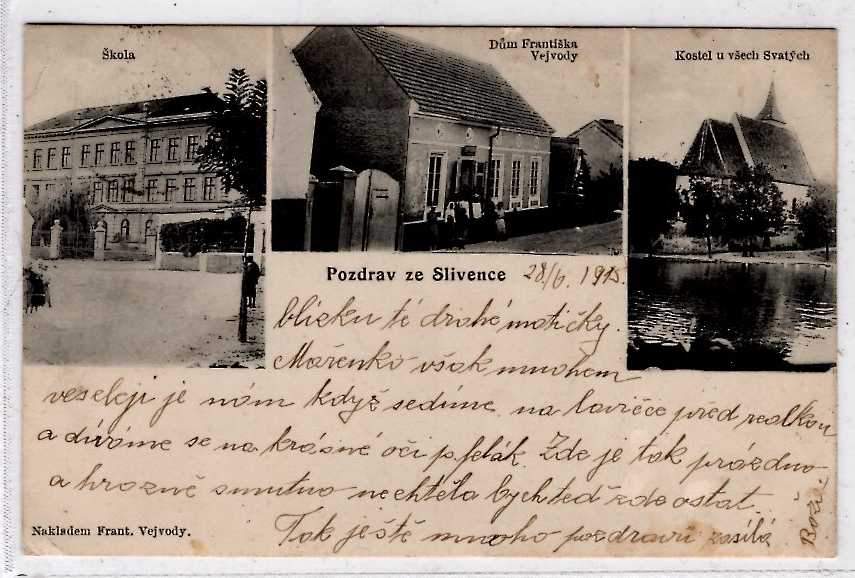 Škola
Dům Františka
Vejvody
Kostel u všech Svatých
Pozdrav ze Slivence
28/6. 1915
blízku té drahé matičky.
Mařenko však mnohem
veseleji je nám když sedíme na lavičce před realkou
a díváme se na krásné oči p. felák. Zde je tak prázdno
a hrozně smutno nechtěla bych teď zde ostat.
Tak ještě mnoho pozdravů zasílá
Boži.
Nakladem Frant. Vejvody.